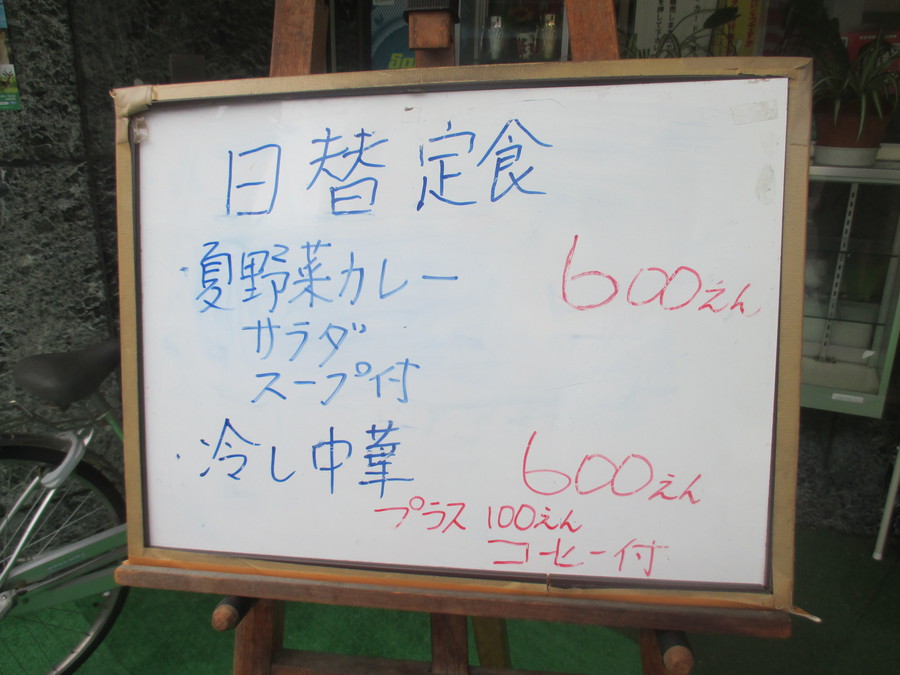 日替定食
・夏野菜カレー 600えん
サラダ
スープ付
・冷し中華 600えん
プラス 100えん
コヒー付